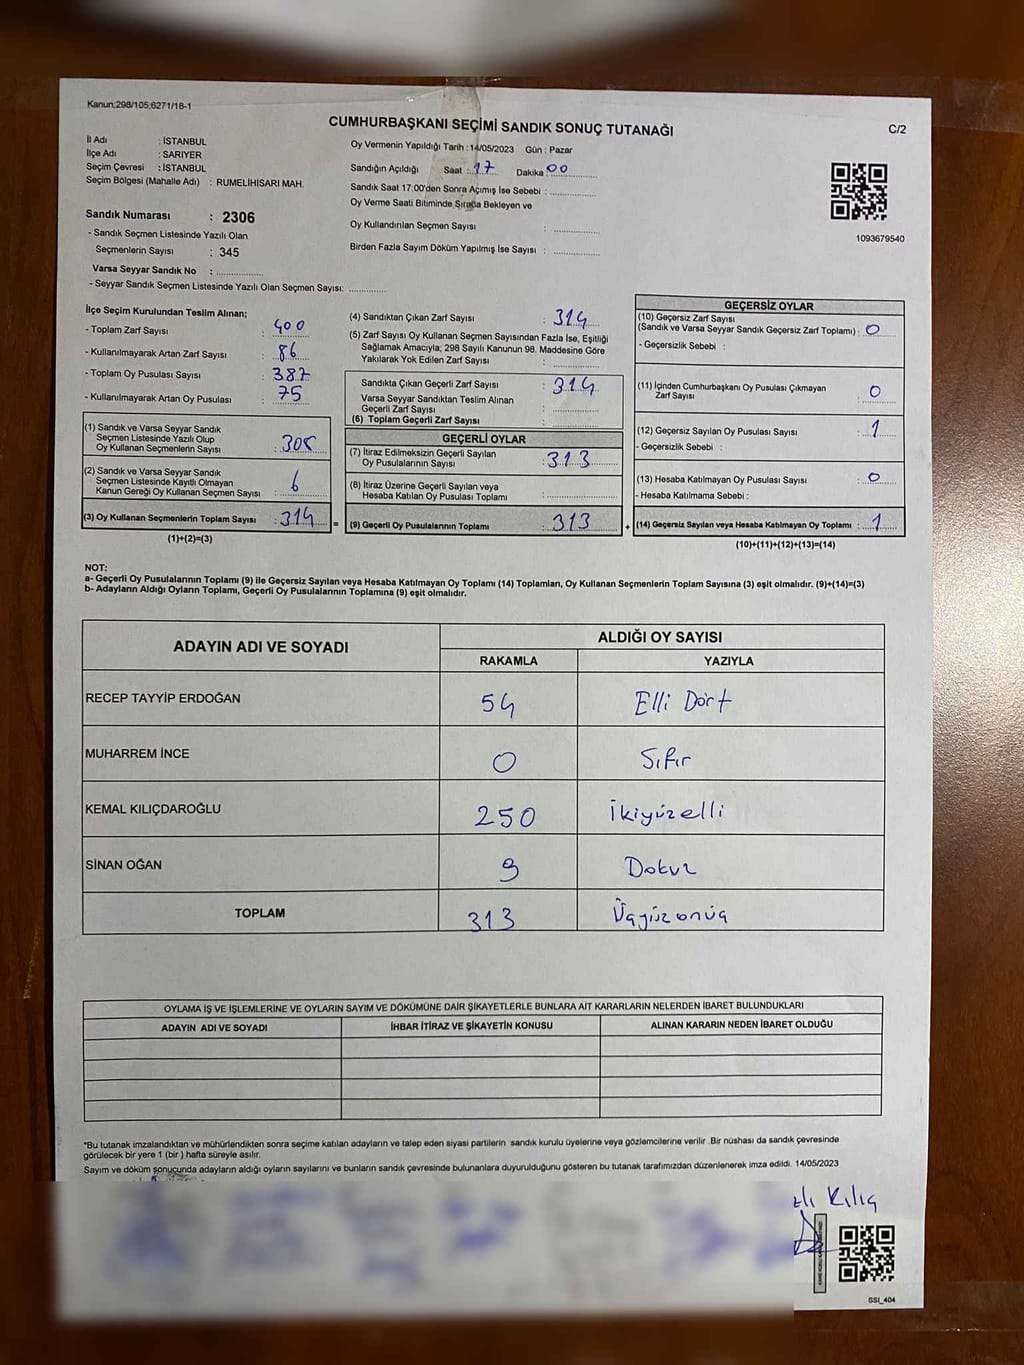 Kanun;298/105,6271/18-1
CUMHURBAŞKANI SEÇİMİ SANDIK SONUÇ TUTANAĞI
C/2
İl Adı : İSTANBUL
İlçe Adı : SARIYER
Seçim Çevresi : İSTANBUL
Seçim Bölgesi (Mahalle Adı) : RUMELİHİSARI MAH.
Sandık Numarası : 2306
- Sandık Seçmen Listesinde Yazılı Olan
Seçmenlerin Sayısı : 345
Varsa Seyyar Sandık No :
- Seyyar Sandık Seçmen Listesinde Yazılı Olan Seçmen Sayısı:
Oy Vermenin Yapıldığı Tarih : 14/05/2023 Gün : Pazar
Sandığın Açıldığı Saat : 17 Dakika : 00
Sandık Saat 17:00'den Sonra Açımış İse Sebebi :
Oy Verme Saati Bitiminde Sırada Bekleyen ve
Oy Kullandırılan Seçmen Sayısı :
Birden Fazla Sayım Döküm Yapılmış İse Sayısı :
1093679540
İlçe Seçim Kurulundan Teslim Alınan;
- Toplam Zarf Sayısı : 400
- Kullanılmayarak Artan Zarf Sayısı : 86
- Toplam Oy Pusulası Sayısı : 387
- Kullanılmayarak Artan Oy Pusulası : 75
(1) Sandık ve Varsa Seyyar Sandık
Seçmen Listesinde Yazılı Olup
Oy Kullanan Seçmenlerin Sayısı : 308
(2) Sandık ve Varsa Seyyar Sandık
Seçmen Listesinde Kayıtlı Olmayan
Kanun Gereği Oy Kullanan Seçmen Sayısı : 6
(3) Oy Kullanan Seçmenlerin Toplam Sayısı : 314 =
(1)+(2)=(3)
(4) Sandıktan Çıkan Zarf Sayısı : 314
(5) Zarf Sayısı Oy Kullanan Seçmen Sayısından Fazla İse, Eşitliği
Sağlamak Amacıyla, 298 Sayılı Kanunun 98. Maddesine Göre
Yakılarak Yok Edilen Zarf Sayısı :
Sandıkta Çıkan Geçerli Zarf Sayısı : 314
Varsa Seyyar Sandıktan Teslim Alınan
Geçerli Zarf Sayısı :
(6) Toplam Geçerli Zarf Sayısı :
GEÇERLİ OYLAR
(7) İtiraz Edilmeksizin Geçerli Sayılan
Oy Pusulalarının Sayısı : 313
(8) İtiraz Üzerine Geçerli Sayılan veya
Hesaba Katılan Oy Pusulası Toplamı :
(9) Geçerli Oy Pusulalarının Toplamı : 313 +
GEÇERSİZ OYLAR
(10) Geçersiz Zarf Sayısı
(Sandık ve Varsa Seyyar Sandık Geçersiz Zarf Toplamı) : 0
- Geçersizlik Sebebi :
(11) İçinden Cumhurbaşkanı Oy Pusulası Çıkmayan
Zarf Sayısı : 0
(12) Geçersiz Sayılan Oy Pusulası Sayısı : 1
- Geçersizlik Sebebi :
(13) Hesaba Katılmayan Oy Pusulası Sayısı : 0
- Hesaba Katılmama Sebebi :
(14) Geçersiz Sayılan veya Hesaba Katılmayan Oy Toplamı : 1
(10)+(11)+(12)+(13)=(14)
NOT:
a- Geçerli Oy Pusulalarının Toplamı (9) ile Geçersiz Sayılan veya Hesaba Katılmayan Oy Toplamı (14) Toplamları, Oy Kullanan Seçmenlerin Toplam Sayısına (3) eşit olmalıdır. (9)+(14)=(3)
b- Adayların Aldığı Oyların Toplamı, Geçerli Oy Pusulalarının Toplamına (9) eşit olmalıdır.
ADAYIN ADI VE SOYADI ALDIĞI OY SAYISI
RAKAMLA YAZIYLA
RECEP TAYYİP ERDOĞAN 54 Elli Dört
MUHARREM İNCE 0 Sıfır
KEMAL KILIÇDAROĞLU 250 İkiyüzelli
SİNAN OĞAN 9 Dokuz
TOPLAM 313 Üçyüzonüç
OYLAMA İŞ VE İŞLEMLERİNE VE OYLARIN SAYIM VE DÖKÜMÜNE DAİR ŞİKAYETLERLE BUNLARA AİT KARARLARIN NELERDEN İBARET BULUNDUKLARI
ADAYIN ADI VE SOYADI İHBAR İTİRAZ VE ŞİKAYETİN KONUSU ALINAN KARARIN NEDEN İBARET OLDUĞU
*Bu tutanak imzalandıktan ve mühürlendikten sonra seçime katılan adayların ve talep eden siyasi partilerin sandık kurulu üyelerine veya gözlemcilerine verilir .Bir nüshası da sandık çevresinde
görülecek bir yere 1 (bir ) hafta süreyle asılır.
Sayım ve döküm sonucunda adayların aldığı oyların sayılarını ve bunların sandık çevresinde bulunanlara duyurulduğunu gösteren bu tutanak tarafımızdan düzenlenerek imza edildi. 14/05/2023
Kılıç
SSI_404